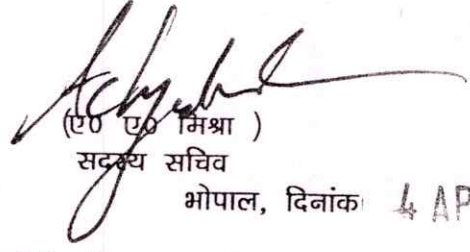 (ए० ए० मिश्रा )
सदस्य सचिव
भोपाल, दिनांक 4 AP